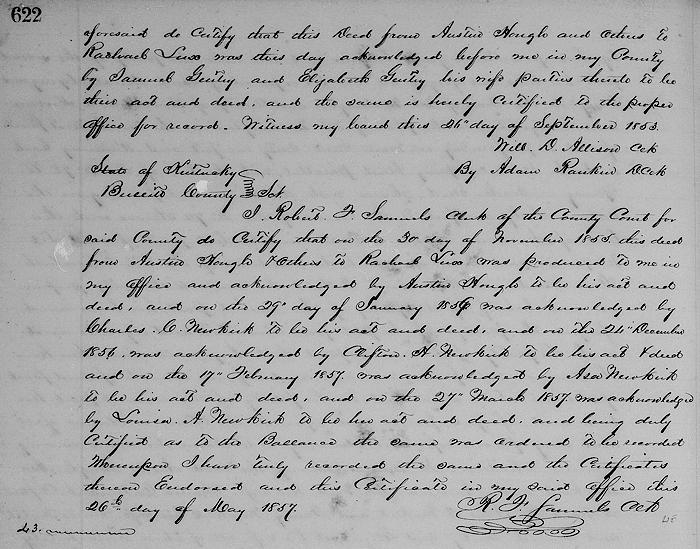 622
aforesaid do Certify that this Deed from Austin Hough and Others to
Rachael Lusx was this day acknowledged before me in my County
by Samuel Gentry and Elizabeth Gentry his wife parties thereto to be
their act and deed, and the same is hereby Certified to the proper
Office for record. Witness my hand this 26" day of September 1853
Will. D. Allison Clk
By Adam Rankin DClk
State of Kentucky
Bullitt County Sct.
I. Robert. F. Samuels Clerk of the County Court for
said County do Certify that on the 30 day of November 1855. this deed
from Austin Hough & Others to Rachael was produced to me in
my Office and acknowledged by Austin Hough to be his act and
deed, and on the 29" day of January 1856 was acknowledged by
Charles. C. Newkirk to be his act and deed, and on the 24" December
1856. was acknowledged by Clifton. H. Newkirk to be his act & deed
and on the 17" February 1857. was acknowledged by Asa Newkirk
to be his act and deed, and on the 27" March 1857 was acknowledged
by Louisa. A. Newkirk to be her act and deed. and being duly
Certified as to the Ballance the same was ordered to be recorded
Whereupon I have truly recorded the same and the Certificates
thereon Endorsed and this Certificate in my said office this
26th day of May 1857.
R. F. Samuels Clk
43.